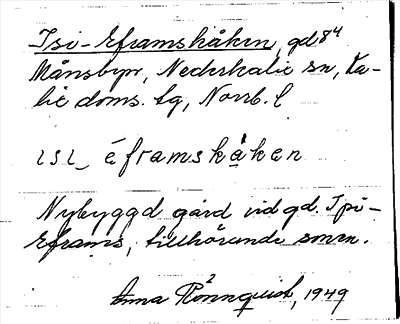 Isi-Eframskåken, gd 8⁴
Månsbyn, Nederkalix sn, Ka-
lix doms. tg, Norrb. l
ɩsɩ_ éframskåken
Nybyggd gård vid gd. Ipi-
Eframs, tillhörande smrn.
Anna Rönnquist, 1949